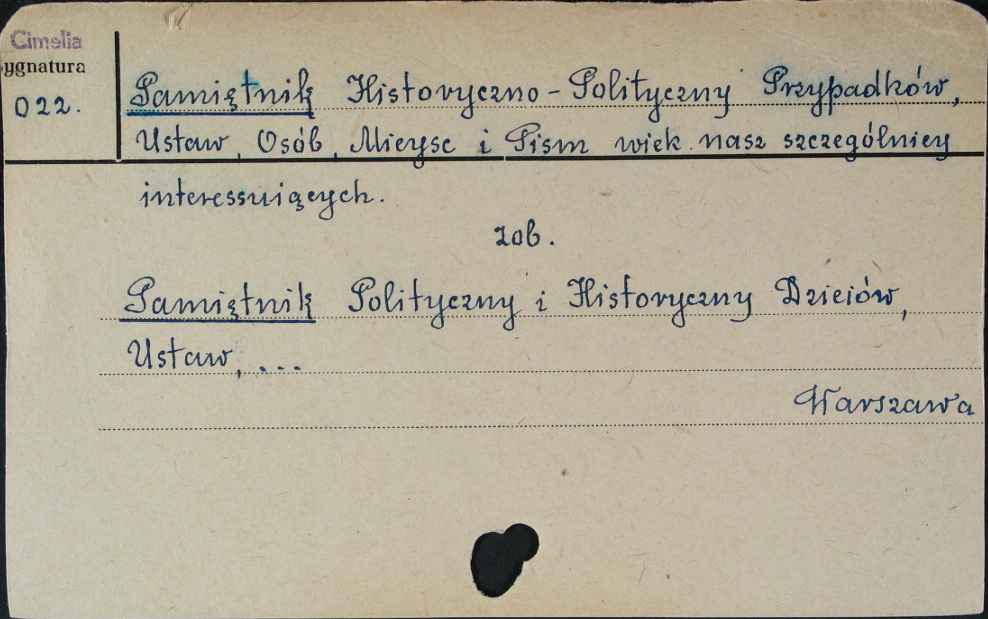 Cimelia
ygnatura
022.
Pamiętnik Historyczno-Polityczny Przypadków,
Ustaw, Osób, Mieysc i Pism wiek nasz szczególniey
interessuiących.
zob.
Pamiętnik Polityczny i Historyczny Dzieiów,
Ustaw, ...
Warszawa